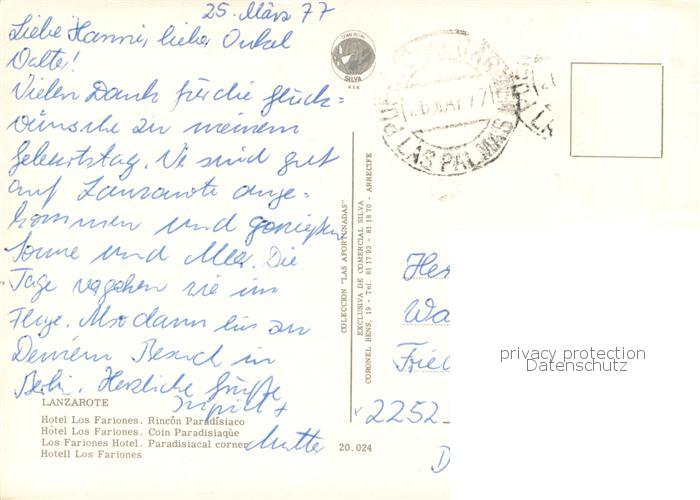 25. März 77
Liebe Hanni, lieber Onkel
Walter!
Vielen Dank für die Glück=
wünsche zu meinem
Geburtstag. Wir sind gut
auf Lanzarote ange=
kommen und genießen
Sonne und Meer. Die
Tage vergehen wie im
Fluge. Also dann bis zu
Deinem Besuch in
Berlin. Herzliche Grüße
+
Mutter
LANZAROTE
Hotel Los Fariones. Rincón Paradísiaco
Hotel Los Fariones. Coin Paradisiaqùe
Los Fariones Hotel. Paradisiacal corner
Hotell Los Fariones
20.024
COLECCION "LAS AFORTUNADAS"
EXCLUSIVA DE COMERCIAL SILVA
CORONEL BENS, 19 - Tel. 81 17 93 - 81 18 70 - ARRECIFE
COMERCIAL
SILVA
LAS PALMAS
Her
Wa
Fried
2252
D
privacy protection
Datenschutz